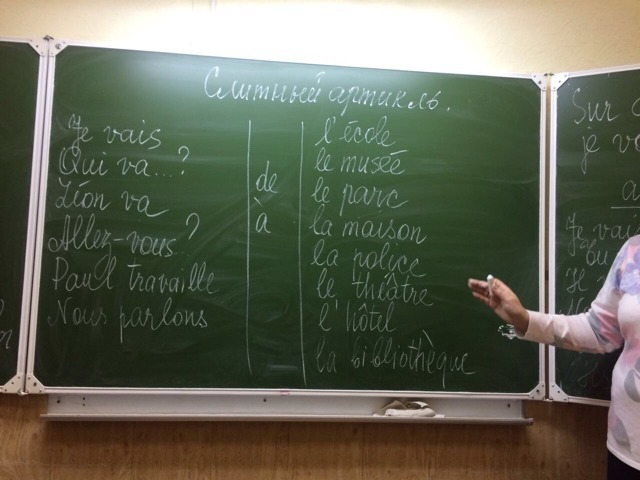 Слитный артикль.
Je vais
Qui va...?
Léon va
Allez-vous...?
Paul travaille
Nous parlons
de
à
l'école
le musée
le parc
la maison
la police
le théâtre
l'hôtel
la bibliothèque
Sur
je
Je vais
ou